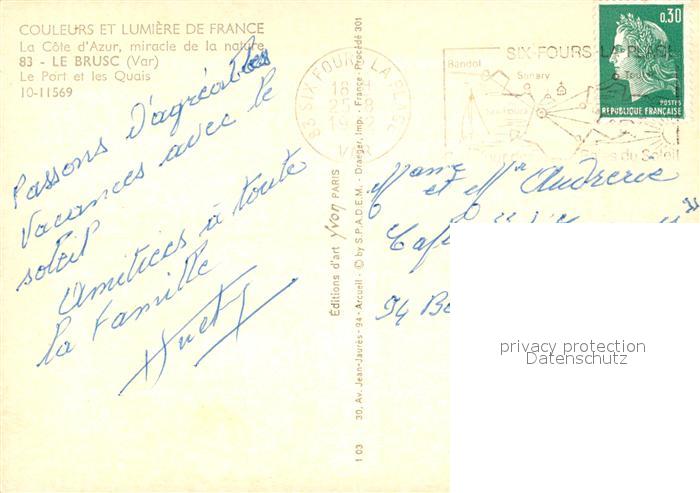 COULEURS ET LUMIÈRE DE FRANCE
La Côte d'Azur, miracle de la nature
83 - LE BRUSC (Var)
Le Port et les Quais
10-11569
Passons d'agréables
vacances avec le
soleil
Amitiés à toute
la famille
Editions d'art Yvon PARIS
30, Av. Jean-Jaurès - 94 - Arcueil - © by S.P.A.D.E.M. - Draeger, Imp. - France - Procédé 301
1 03
83 SIX FOURS LA PLAGE
18 H
25 8
SIX-FOURS-LA-PLAGE
Bandol
Sanary
du Soleil
0,30
POSTES
REPUBLIQUE FRANÇAISE
Mme et Mr
94
privacy protection
Datenschutz